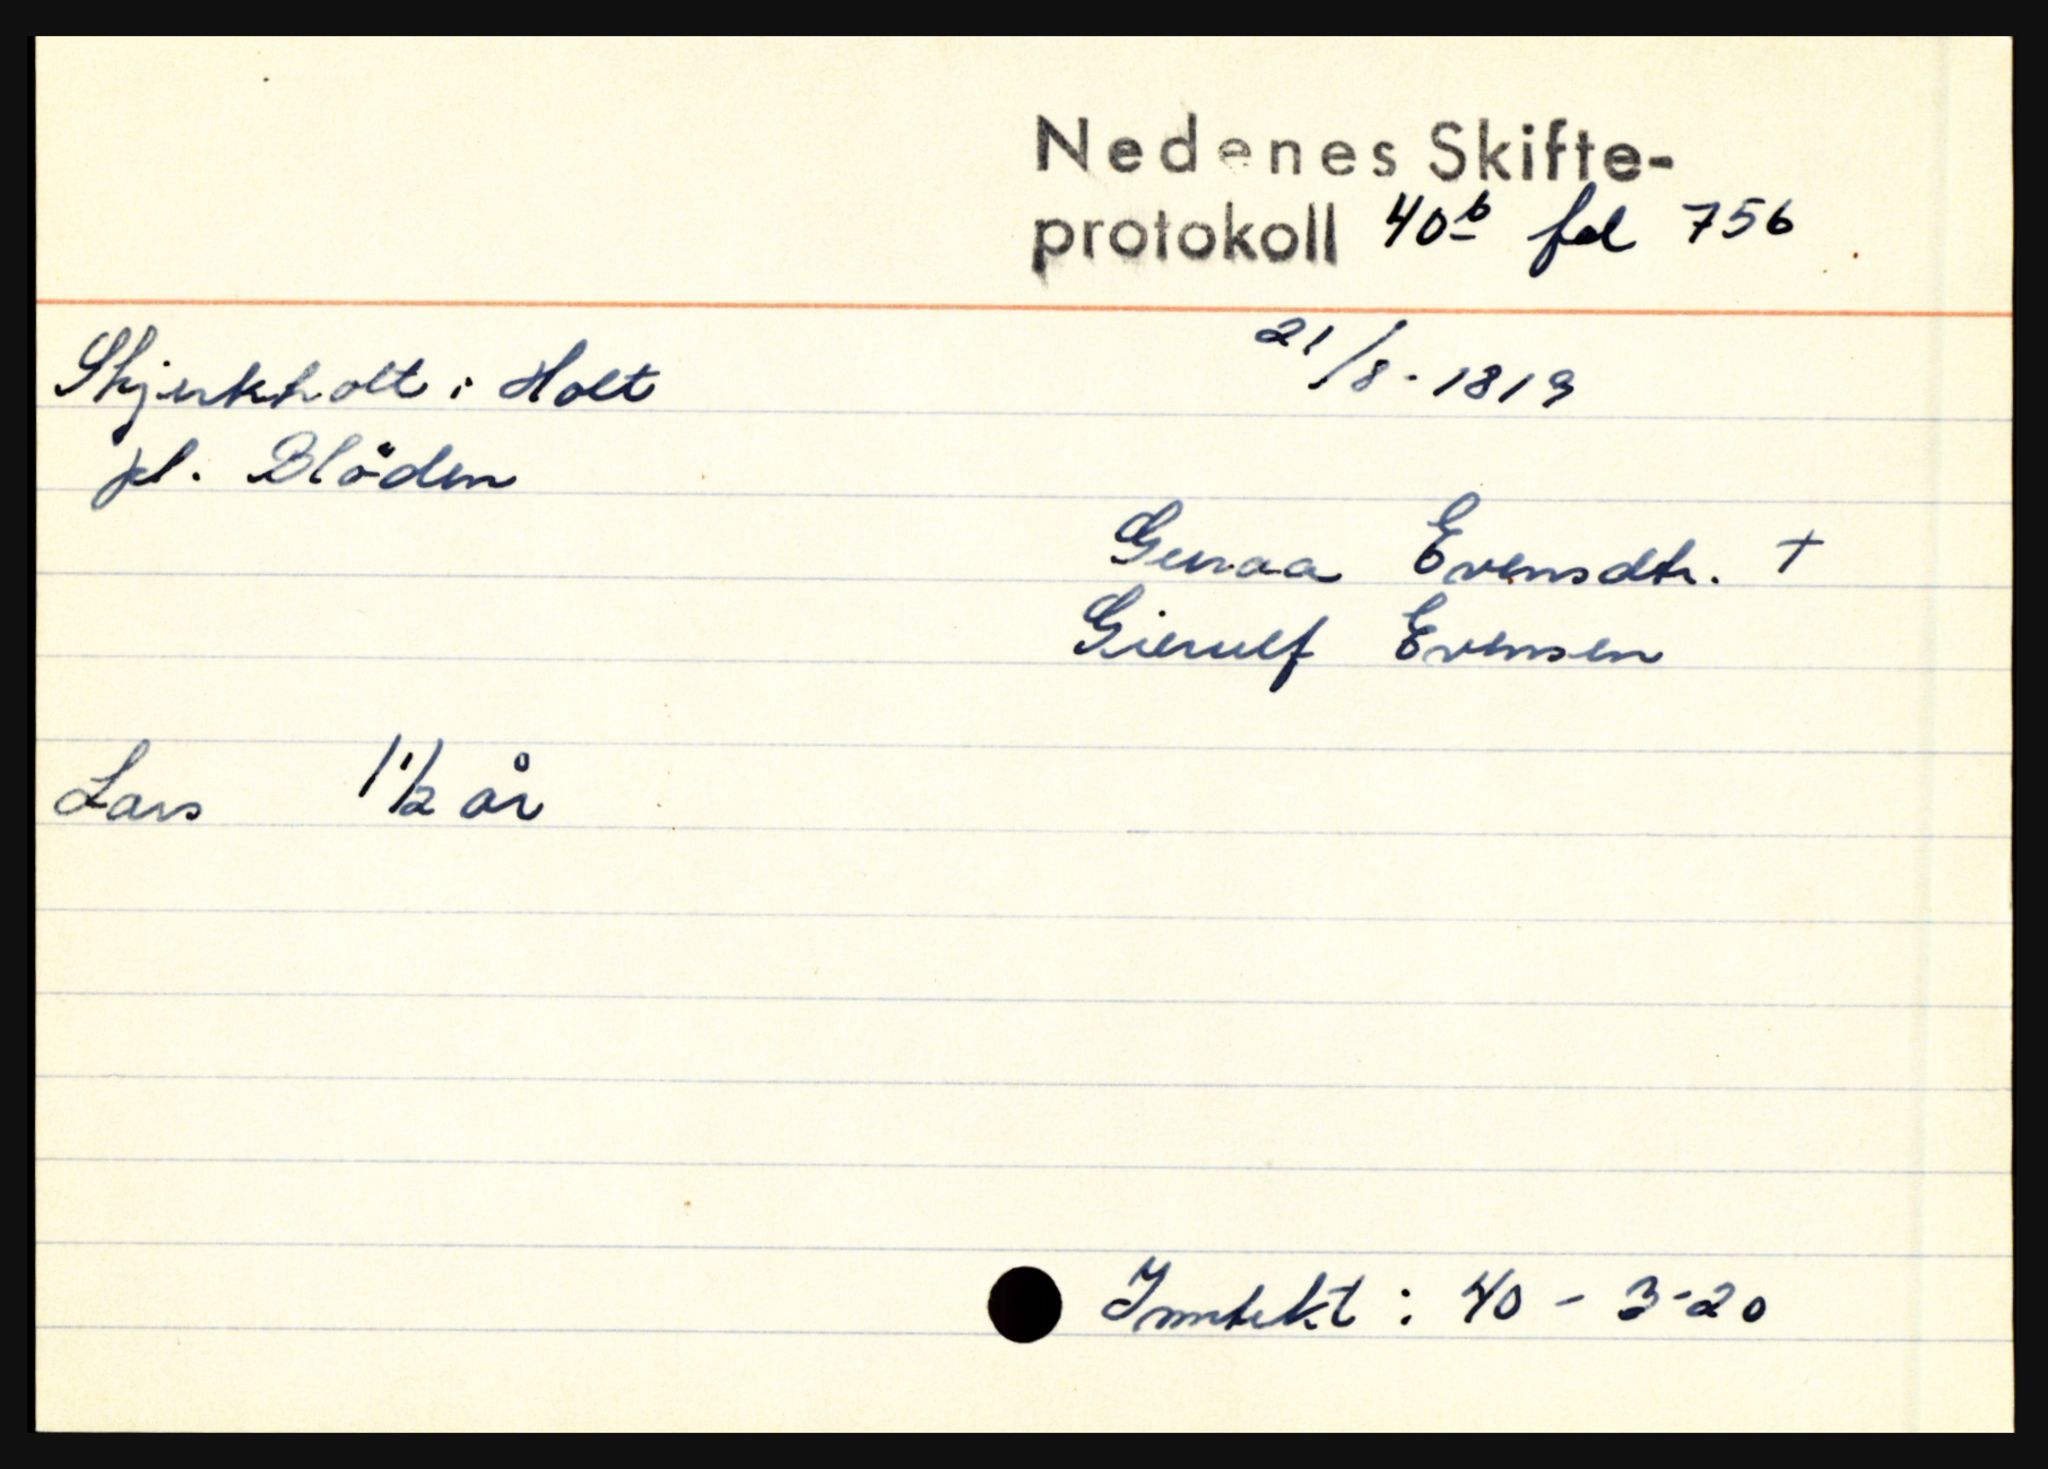 Nedenes Skifte-
protokoll 40b fol 756
Skjerkholt i Holt
21/8-1819
pl. Blöden
Gunaa Evensdtr. +
Gierulf Evensen
Lars 1 1/2 år
Inntekt : 40 - 3-20